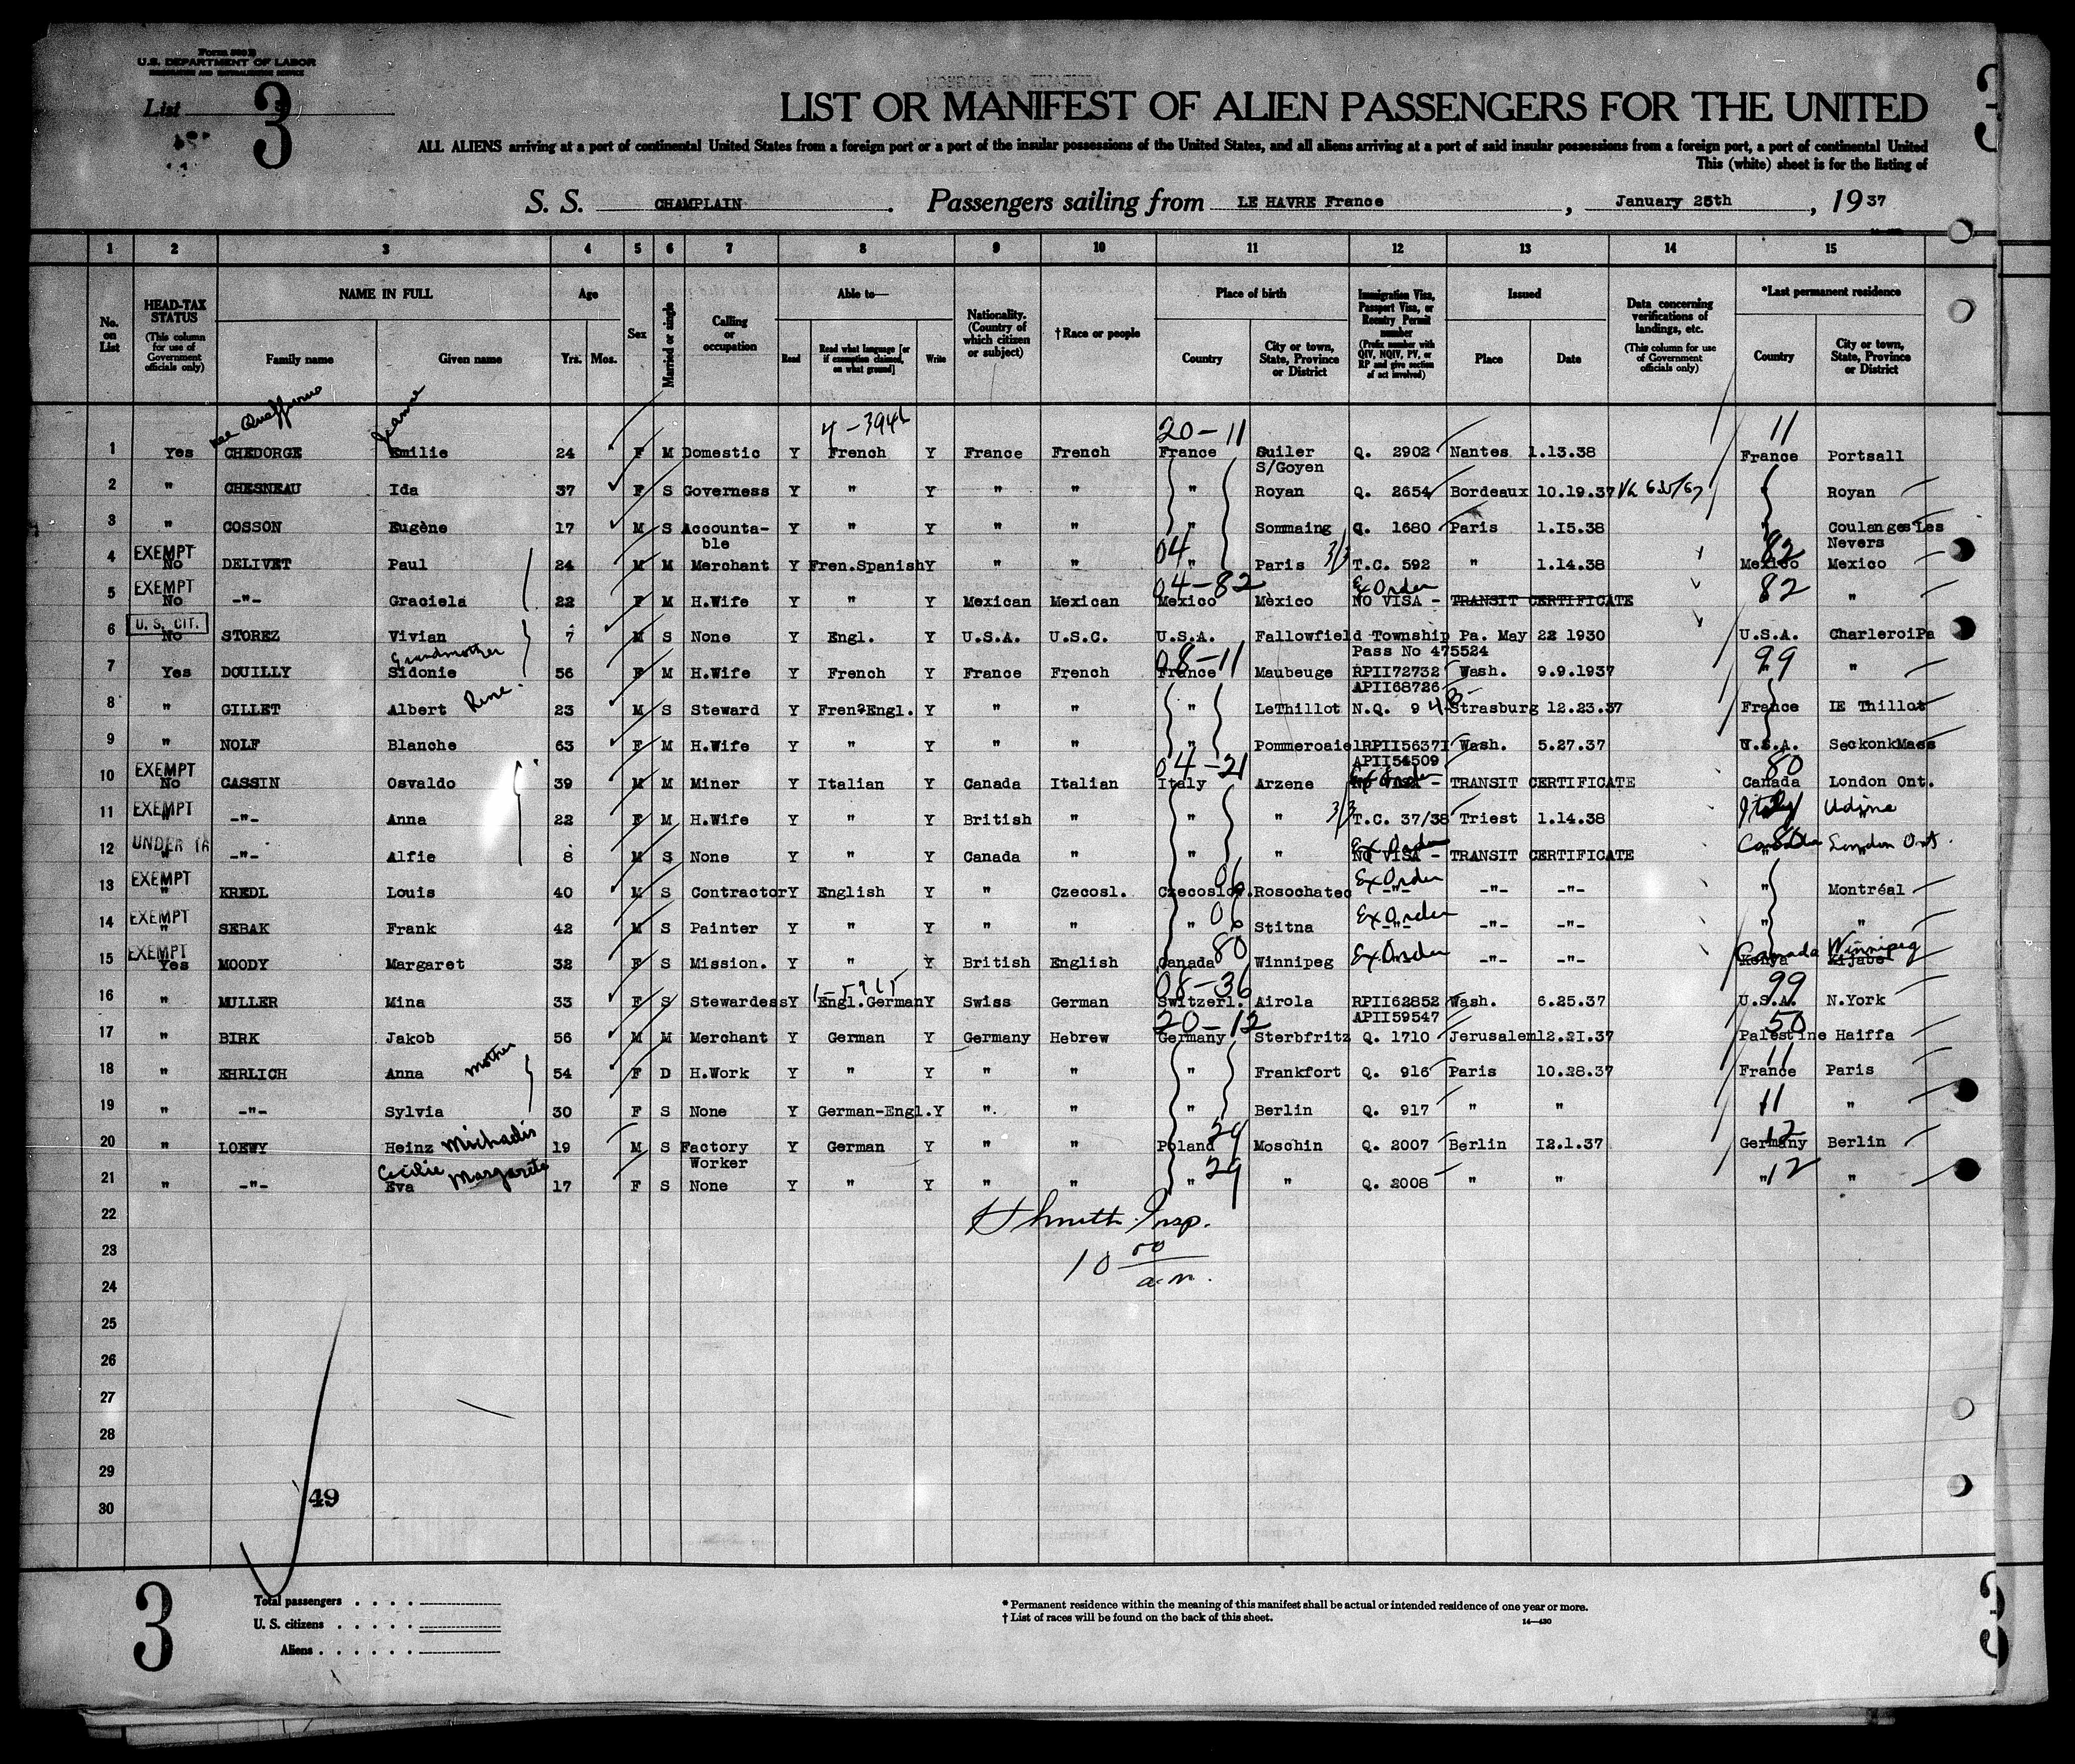 Form 500 B
U.S. DEPARTMENT OF LABOR
IMMIGRATION AND NATURALIZATION SERVICE
List 3
LIST OR MANIFEST OF ALIEN PASSENGERS FOR THE UNITED
ALL ALIENS arriving at a port of continental United States from a foreign port or a port of the insular possessions of the United States, and all aliens arriving at a port of said insular possessions from a foreign port, a port of continental United
This (white) sheet is for the listing of
S. S. CHAMPLAIN . Passengers sailing from LE HAVRE France , January 25th , 19 37
1 2 3 4 5 6 7 8 9 10 11 12 13 14 15
No. on List
HEAD-TAX STATUS (This column for use of Government officials only)
NAME IN FULL
Family name Given name
Age
Yrs. Mos.
Sex
Married or single
Calling or occupation
Able to—
Read Read what language [or if exemption claimed, on what ground] Write
Nationality. (Country of which citizen or subject)
†Race or people
Place of birth
Country City or town, State, Province or District
Immigration Visa, Passport Visa, or Reentry Permit number (Prefix number with QIV, NQIV, PV, or RP and give section of act involved)
Issued
Place Date
Data concerning verifications of landings, etc. (This column for use of Government officials only)
*Last permanent residence
Country City or town, State, Province or District
Jeanne 20-11 11
1 Yes CHEDORGE Emilie 24 F M Domestic Y French Y France French France Suiler S/Goyen Q. 2902 Nantes 1.13.38 France Portsall
2 " CHESNEAU Ida 37 F S Governess Y " Y " " " Royan Q. 2654 Bordeaux 10.19.37 Royan
3 " COSSON Eugène 17 M S Accounta-ble Y " Y " " " Sommaing Q. 1680 Paris 1.15.38 " Coulanges Les Nevers
04 82
4 EXEMPT No DELIVET Paul 24 M M Merchant Y Fren.Spanish Y " " " Paris 3/3 T.C. 592 " 1.14.38 Mexico Mexico
04-82 Ex Order 82
5 EXEMPT No -"- Graciela 22 F M H.Wife Y " Y Mexican Mexican Mexico Mèxico NO VISA - TRANSIT CERTIFICATE "
6 U.S. CIT. No STOREZ Vivian 7 M S None Y Engl. Y U.S.A. U.S.C. U.S.A. Fallowfield Township Pa. May 22 1930 U.S.A. CharleroiPa
Pass No 475524
Grandmother 08-11 99
7 Yes DOUILLY Sidonie 56 F M H.Wife Y French Y France French France Maubeuge RPII72732 Wash. 9.9.1937 "
APII68726
Rene
8 " GILLET Albert 23 M S Steward Y Fren?Engl. Y " " " LeThillot N.Q. 9 Strasburg 12.23.37 France lE Thillot
9 " NOLF Blanche 63 F M H.Wife Y " Y " " " Pommeroaie lRPII56371 Wash. 5.27.37 U.S.A. SeckonkMass
APII54509
04-21 Ex Order 80
10 EXEMPT No CASSIN Osvaldo 39 M M Miner Y Italian Y Canada Italian Italy Arzene NO VISA - TRANSIT CERTIFICATE Canada London Ont.
11 EXEMPT " -"- Anna 22 F M H.Wife Y " Y British " " " 3/3 T.C. 37/38 Triest 1.14.38 Italy Udine
Ex Order 80
12 UNDER 16 " -"- Alfie 8 M S None Y " Y Canada " " " NO VISA - TRANSIT CERTIFICATE Canada London Ont.
06 Ex Order
13 EXEMPT " KREDL Louis 40 M S Contractor Y English Y " Czecosl. Czecoslov. Rosochatec -"- -"- -"- " Montréal
06 Ex Order
14 EXEMPT " SEBAK Frank 42 M S Painter Y " Y " " " Stitna -"- -"- -"- " "
80 Ex Order Canada Winnipeg
15 EXEMPT Yes MOODY Margaret 32 F S Mission. Y " Y British English Canada Winnipeg -"- -"- Kenya Kijabe
08-36 99
16 " MULLER Mina 33 F S Stewardess Y Engl.German Y Swiss German Switzerl. Airola RPII62852 Wash. 6.25.37 U.S.A. N.York
APII59547
20-12 50
17 " BIRK Jakob 56 M M Merchant Y German Y Germany Hebrew Germany Sterbfritz Q. 1710 Jerusalem 12.21.37 Palestine Haiffa
mother 11
18 " EHRLICH Anna 54 F D H.Work Y " Y " " " Frankfort Q. 916 Paris 10.28.37 France Paris
19 " -"- Sylvia 30 F S None Y German-Engl. Y " " " Berlin Q. 917 " " 11 "
29 12
20 " LOEWY Heinz Michaelis 19 M S Factory Worker Y German Y " " Poland Moschin Q. 2007 Berlin 12.1.37 Germany Berlin
Cecilie Margarete 29
21 " -"- Eva 17 F S None Y " Y " " " " Q. 2008 " " " 12 "
22
Insp.
23
10 00 a.m.
24
25
26
27
28
29
49
30
3
Total passengers
U. S. citizens
Aliens
* Permanent residence within the meaning of this manifest shall be actual or intended residence of one year or more.
† List of races will be found on the back of this sheet.
14—430